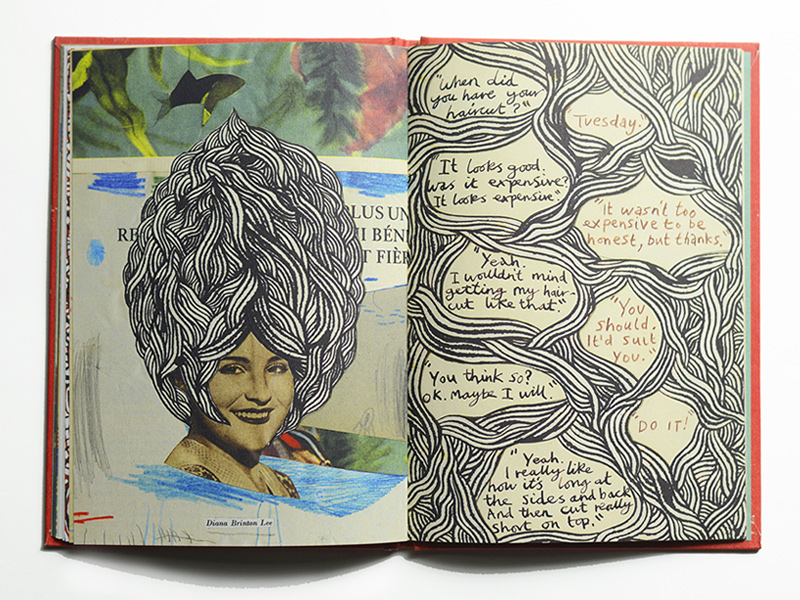 LUS UN
RE
I BÉN
T FIÈR
Diana Brinton Lee
"When did
you have your
haircut?"
"Tuesday."
"It looks good.
was it expensive?
It looks expensive."
"It wasn't too
expensive to be
honest, but thanks."
"Yeah.
I wouldn't mind
getting my hair-
cut like that."
"You
should.
It'd suit
you."
"You think so?
OK. Maybe I will."
"DO IT!"
"Yeah.
I really like
how it's long at
the sides and back
And then cut really
short on top."